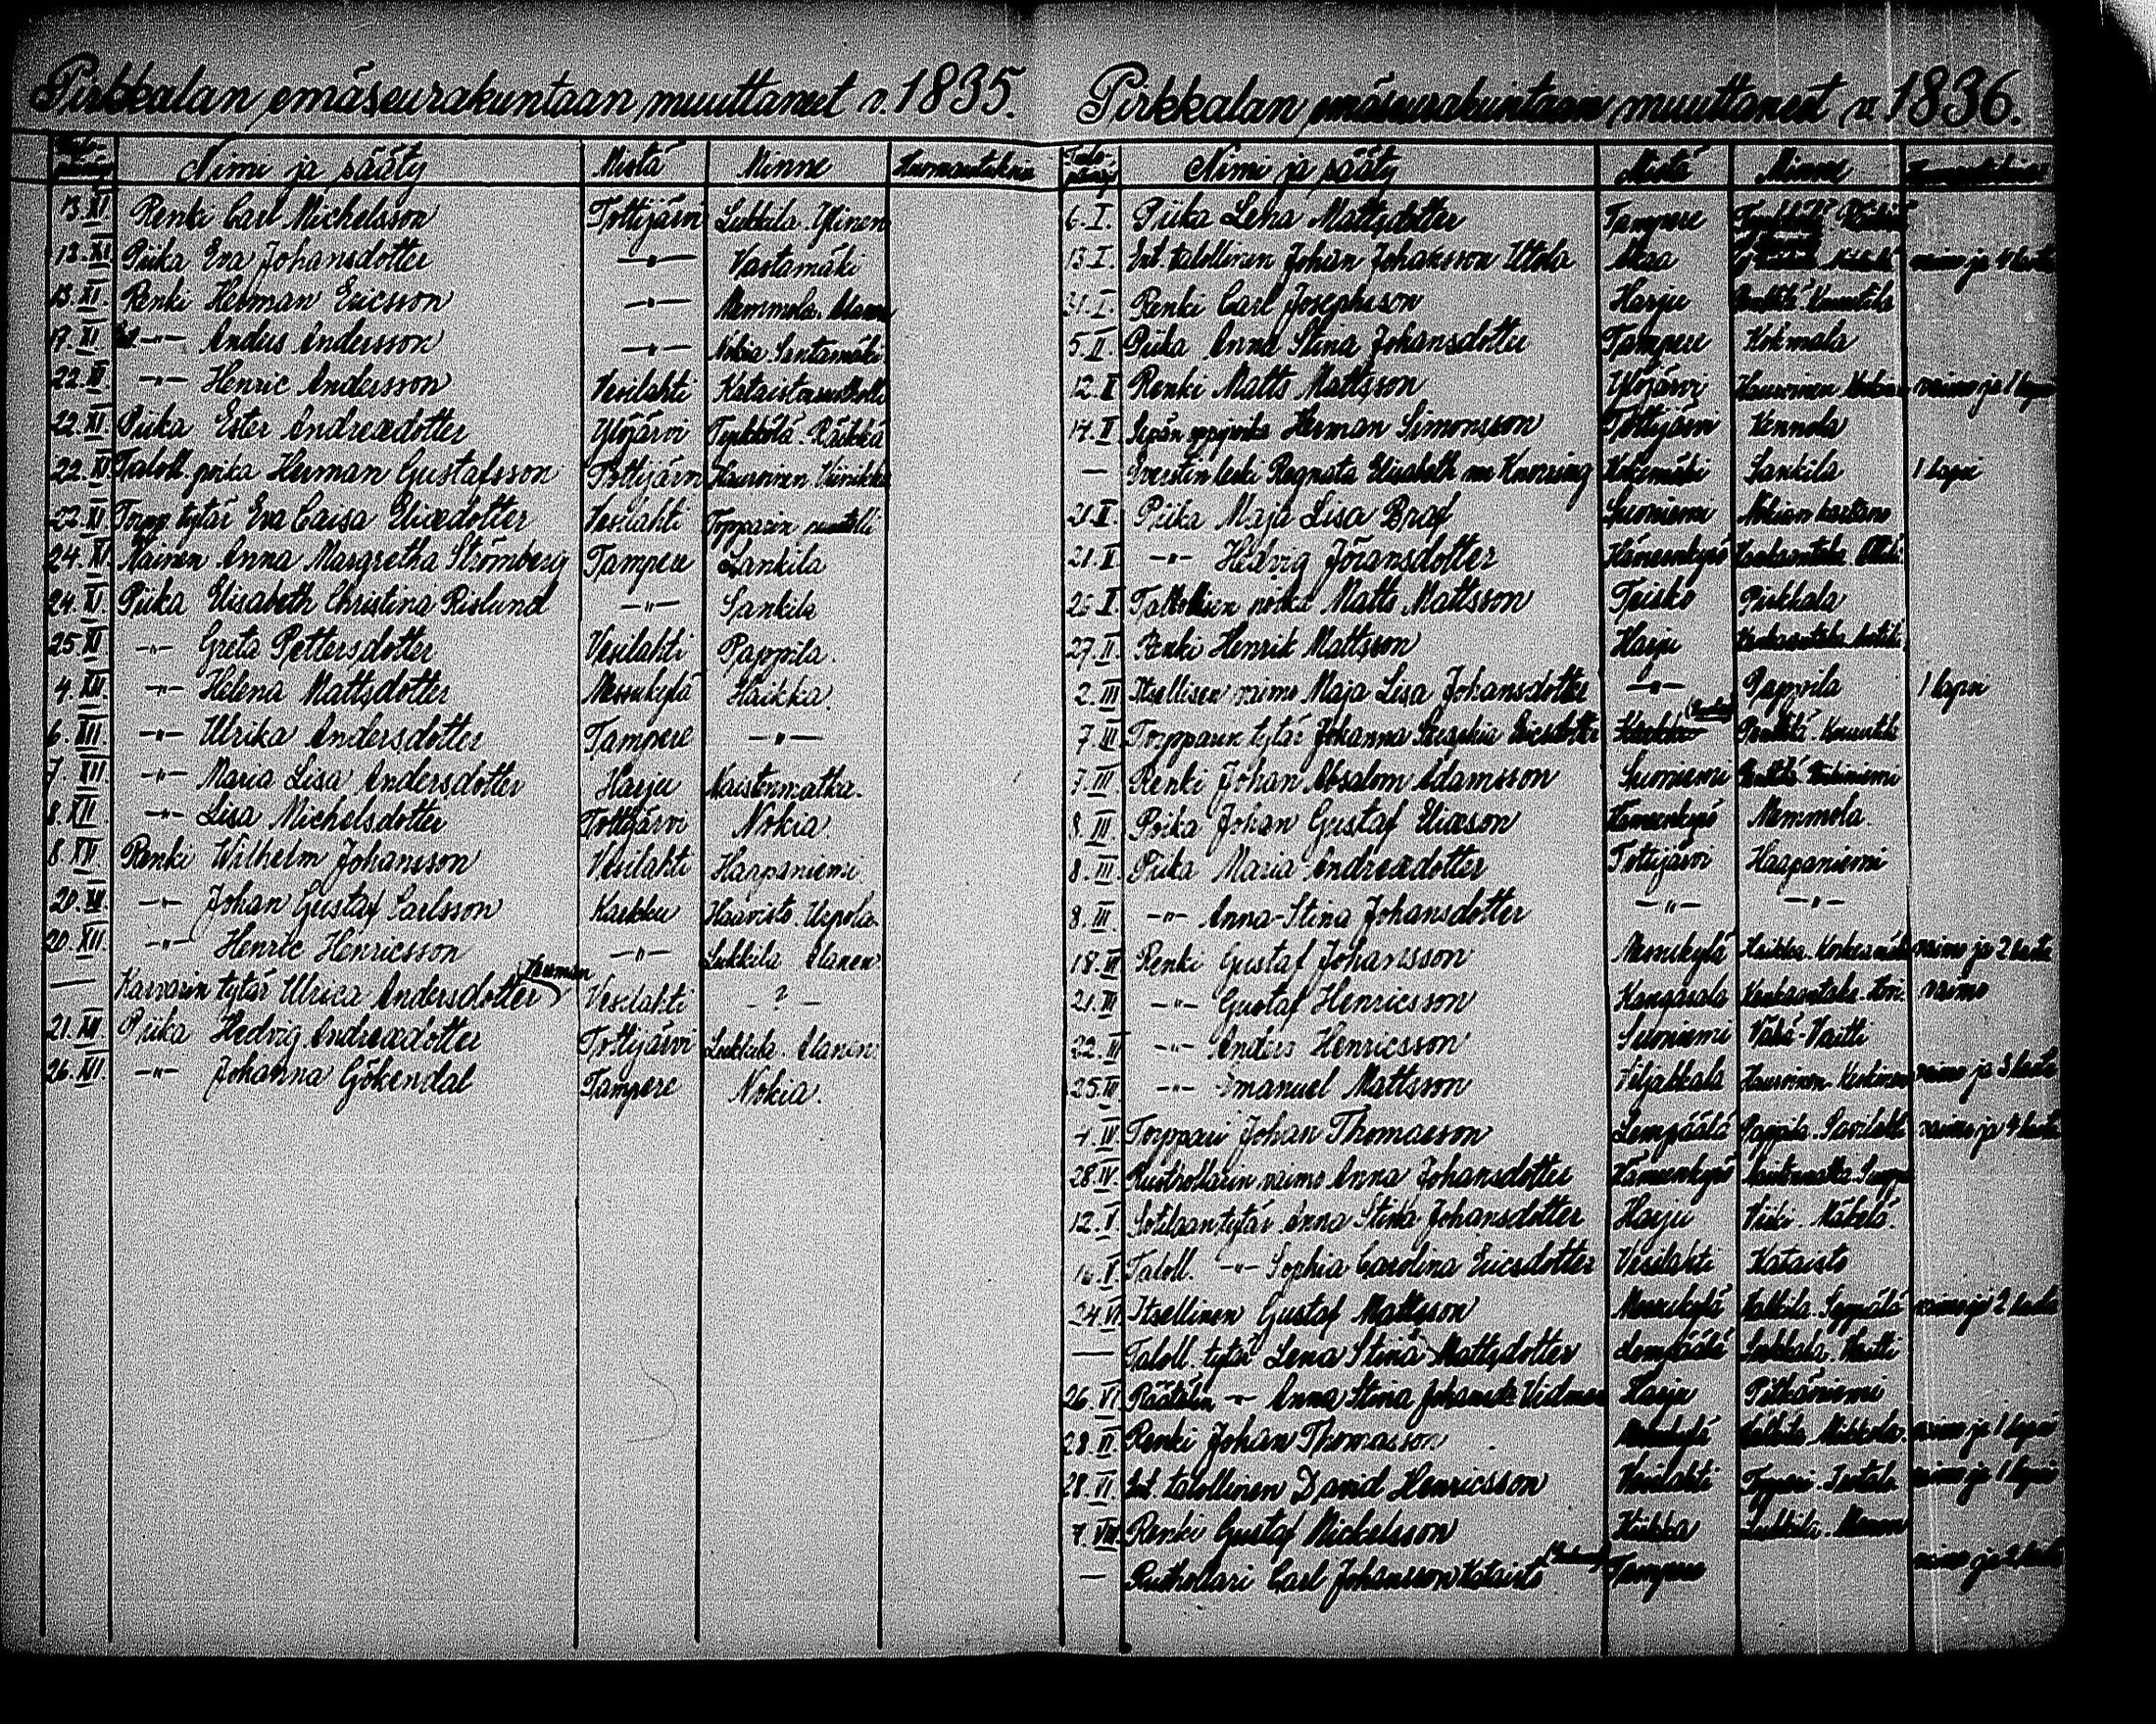 Pirkkalan emäseurakuntaan muuttaneet v. 1835.
Nimi ja sääty Mistä Minne Huomautuksia
13.XI Renki Carl Michelsson Tottijärvi Lukkila. Ylinen
13.XI Piika Eva Johansdotter —"— Vastamäki
13.XI. Renki Herman Ericsson —"— Memmola. Alanen
17.XI. —"— Anders Andersson —"— Nokia Santamäki.
22.XI —"— Henric Andersson Vesilahti Kataiston
22.XI. Piika Ester Andreædotter Ylöjärvi Tyrkkölä. Räikkä
22.XI Taloll. poika Herman Gustafsson Tottijärvi Haavinen
22.XI Torpp. tytär Eva Caisa Eliædotter Vesilahti Topparin
24.XI Nainen Anna Margretha Strömberg Tampere Sankila
24.XI. Piika Elisabeth Christina Rislund —"— Sankila
25.XI —"— Greta Pettersdotter Vesilahti Pappila.
4.XII. —"— Helena Mattsdotter Messukylä Haikka.
6.XII. —"— Ulrika Andersdotter Tampere —"—
7.XII —"— Maria Lisa Andersdotter Harju Naistenmatka.
8.XII. —"— Lisa Michelsdotter Tottijärvi Nokia.
8.XII. Renki Wilhelm Johansson Vesilahti Haapaniemi.
20.XII. —"— Johan Gustaf Carlsson Karkku Haavisto. Uepola.
20.XII. —"— Henric Henricsson —"— Lukkila Alanen.
— Karvarin tytär Ulrica Andersdotter Vesilahti - ? -
21.XII. Piika Hedvig Andreædotter Tottijärvi Lukkila. Alanen.
26.XII. —"— Johanna Gökendal Tampere Nokia.
Pirkkalan emäseurakuntaan muuttaneet v. 1836.
Tulopäivä Nimi ja sääty Mistä Minne Huomautuksia
6.I. Piika Lena Mattsdotter Tampere
13.I. Ent. talollinen Johan Johansson Uttola Akaa vaimo ja 4 lasta
31.I. Renki Carl Josephsson Harju
5.II. Piika Anna Stina Johansdotter Tampere Kohmala
12.II Renki Matts Mattsson Ylöjärvi vaimo ja 1 lapsi
14.II Sepän oppipoika Herman Simonsson Tottijärvi Kennola
— Everstin leski Regnata Elisabeth von Knorring Kokemäki Sankila 1 lapsi
21.II. Piika Maja Lisa Braf Suoniemi Nokian kartano
21.II —"— Hedvig Jöransdotter Hämeenkyrö
26.II Talollisen poika Matts Mattsson Teisko Pirkkala
27.II. Renki Henrik Mattsson Harju
2.III Itsellisen vaimo Maja Lisa Johansdotter —"— Pappila 1 lapsi
7.III Torpparin tytär Johanna Sersophia Ericsdotter
7.III. Renki Johan Absalom Adamsson Suoniemi
8.III Poika Johan Gustaf Eliæson Hämeenkyrö Memmola.
8.III. Piika Maria Andreædotter Tottijärvi Haapaniemi
8.III. —"— Anna-Stina Johansdotter —"— —"—
18.III Renki Gustaf Johansson Messukylä vaimo ja 2 lasta
21.III —"— Gustaf Henricsson Kangasala vaimo
22.III —"— Anders Henricsson Suoniemi Vähä-Vaitti
25.III. —"— Emanuel Mattsson Viljakkala vaimo ja 3 lasta
4.IV Torppari Johan Thomasson Lempäälä Pappila. vaimo ja 4 lasta
28.IV. Rusthollarin vaimo Anna Johansdotter Hämeenkyrö
12.V Sotilaan tytär Anna Stina Johansdotter Harju Viiki. Mäkelä.
16.V. Taloll. —"— Sophia Carolina Ericsdotter Vesilahti Kataisto
24.VI. Itsellinen Gustaf Mattsson Messukylä vaimo ja 2 lasta
— Taloll. tytär Lena Stina Mattsdotter Lempäälä
26.VI. Räätälin —"— Anna Stina Johansdr Vidman Harju Pitkäniemi
28.VI. Renki Johan Thomasson Messukylä vaimo ja 1 lapsi
28.VI. Ent. talollinen David Henricsson Vesilahti vaimo ja 1 lapsi
7.VIII. Renki Gustaf Mickelsson Kiikka Lukkila. Alanen
— Rusthollari Carl Johansson Kataisto Tampere vaimo ja 2 lasta